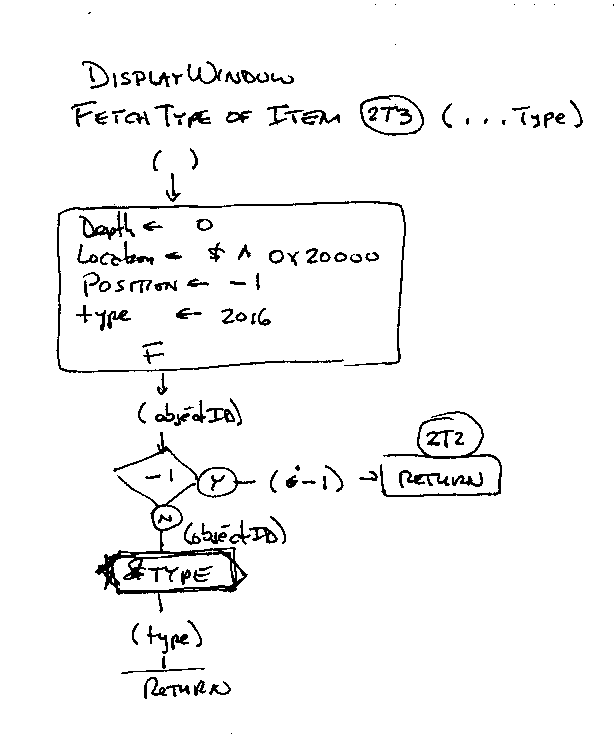 DISPLAY WINDOW
FETCH TYPE OF ITEM 2T3 (...Type)
( )
Depth ← 0
Location ← $ ^ 0x20000
POSITION ← -1
type ← 2016
F
(objectID)
2T2
-1 Y (-1) → RETURN
N
(objectID)
TYPE
(type)
RETURN